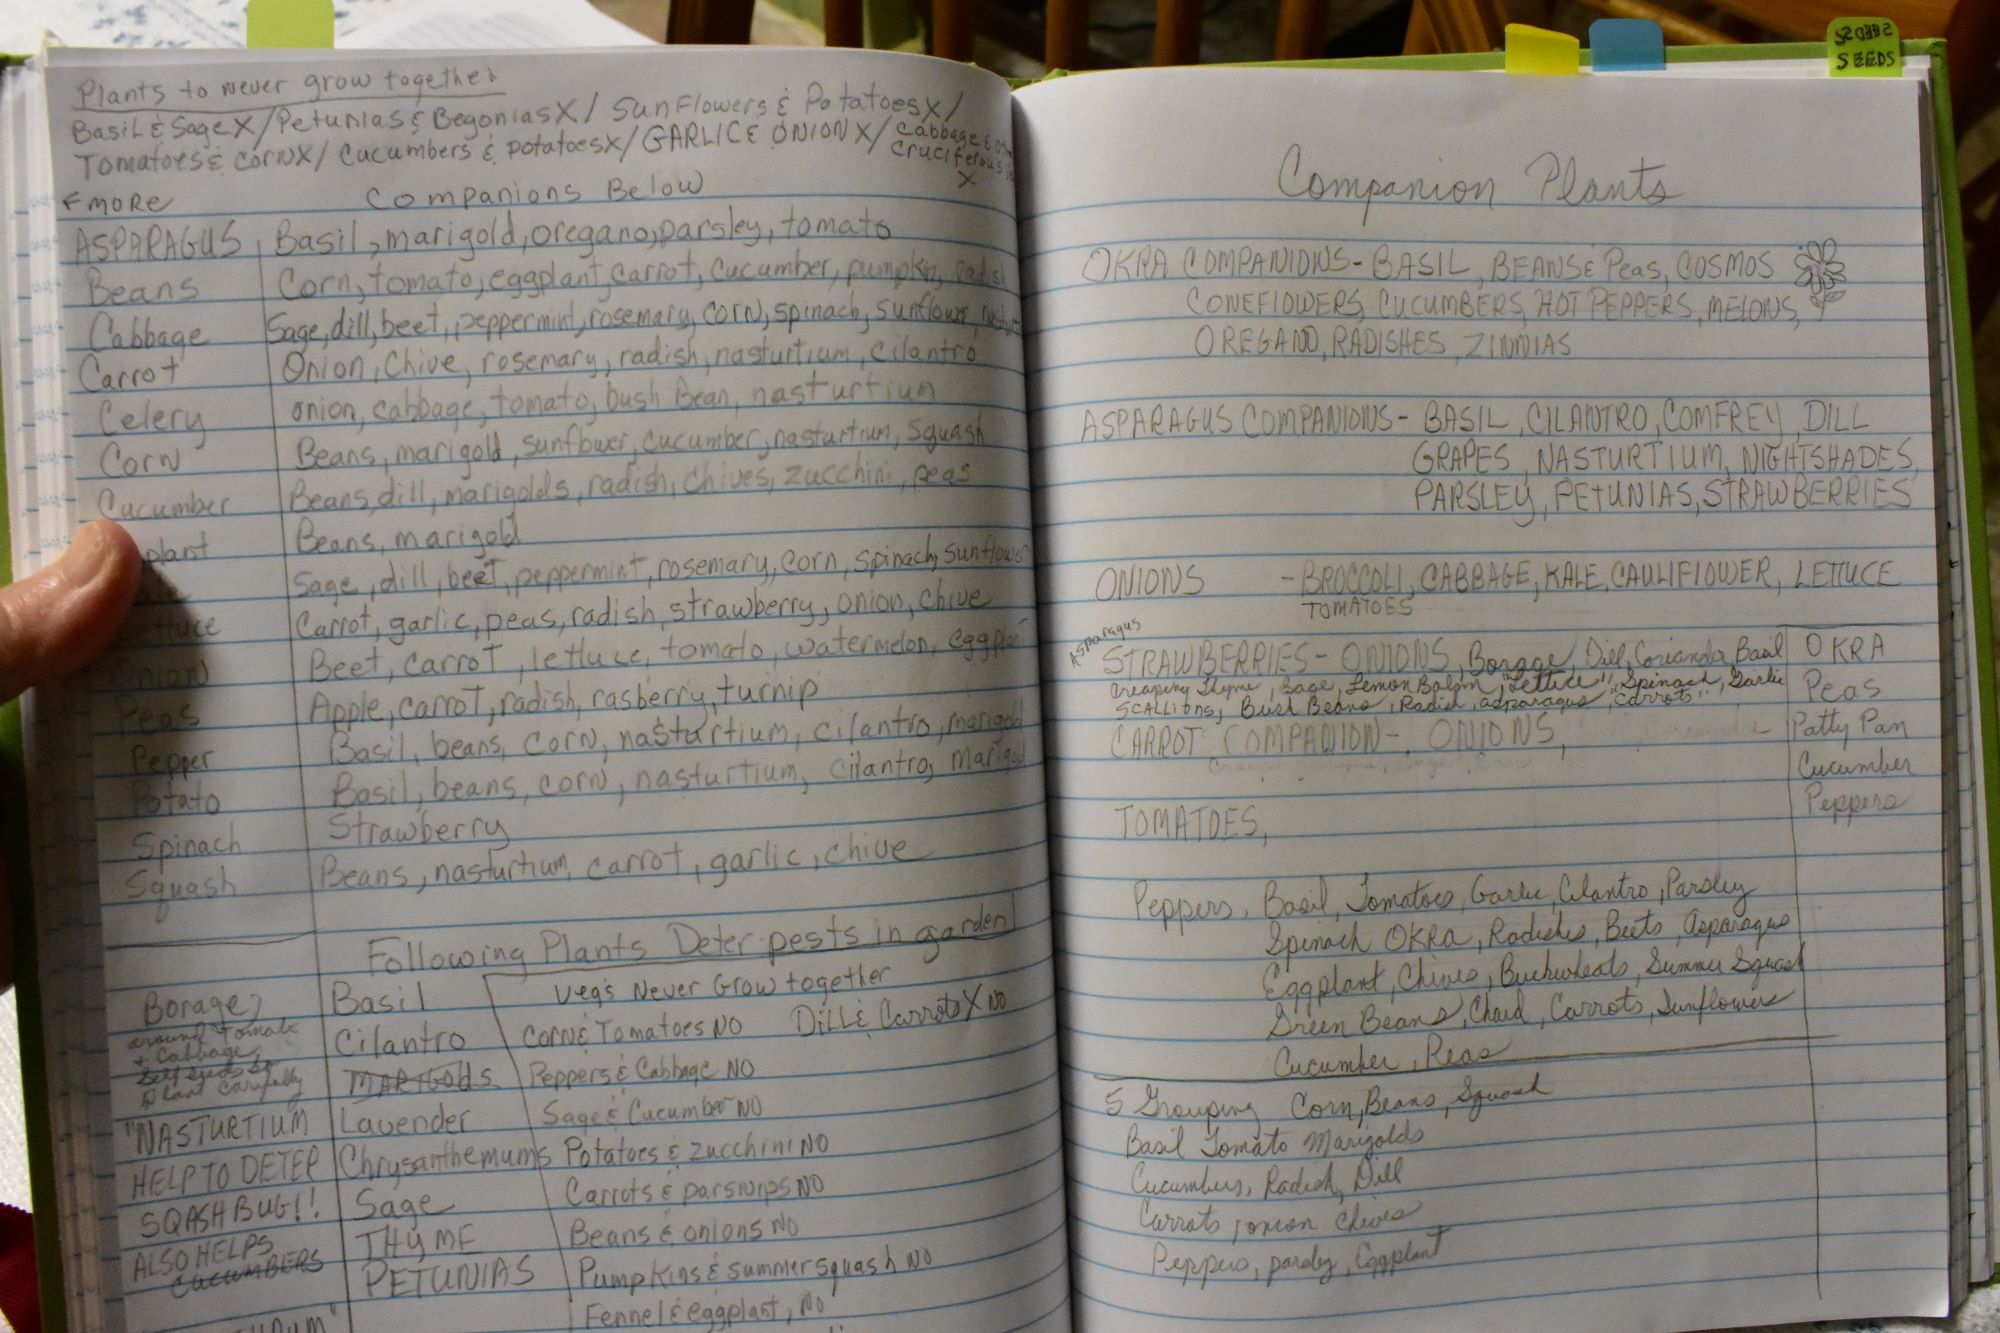 S20BBS
SEEDS
Plants to never grow together
Basil & Sage X / Petunias & Begonias X / SunFlowers & Potatoes X /
Tomatoes & corn X / Cucumbers & potatoes X / GARLIC & ONION X / Cabbage &
cruciferous
X
< MORE Companions Below
ASPARAGUS, Basil, marigold, oregano, parsley, tomato
Beans Corn, tomato, eggplant, carrot, cucumber, pumpkin, radish
Cabbage Sage, dill, beet, peppermint, rosemary, corn, spinach, sunflower,
Carrot Onion, Chive, rosemary, radish, nasturtium, cilantro
Celery onion, cabbage, tomato, bush Bean, nasturtium
Corn Beans, marigold, sunflower, cucumber, nasturtium, squash
Cucumber Beans, dill, marigolds, radish, chives, zucchini, peas
plant Beans, marigold
Sage, dill, beet, peppermint, rosemary, corn, spinach, sunflower
Lettuce Carrot, garlic, peas, radish, strawberry, onion, chive
Onion Beet, carrot, lettuce, tomato, watermelon, eggplant
Peas Apple, carrot, radish, rasberry, turnip
Pepper Basil, beans, corn, nasturtium, cilantro, marigold
Potato Basil, beans, corn, nasturtium, cilantro, marigold
Spinach Strawberry
Squash Beans, nasturtium, carrot, garlic, chive
Following Plants Deter pests in garden!
Borage,
around tomato
+ Cabbage
Self seeds so
plant carefully
"NASTURTIUM
HELP TO DETER
SQASH BUG!!
ALSO HELPS
CUCUMBERS
Basil
Cilantro
MARIGOLDS
Lavender
Chrysanthemums
Sage
THYME
PETUNIAS
Veg's Never Grow together
Corn & Tomatoes NO Dill & Carrots X NO
Peppers & Cabbage NO
Sage & Cucumber NO
Potatoes & zucchini NO
Carrots & parsnips NO
Beans & onions NO
Pumpkins & summer squash NO
Fennel & eggplant, NO
Companion Plants
OKRA COMPANIONS - BASIL, BEANS & Peas, COSMOS
CONEFLOWERS, CUCUMBERS, HOT PEPPERS, MELONS,
OREGANO, RADISHES, ZINNIAS
ASPARAGUS COMPANIONS - BASIL, CILANTRO, COMFREY, DILL
GRAPES, NASTURTIUM, NIGHTSHADES,
PARSLEY, PETUNIAS, STRAWBERRIES
ONIONS - BROCCOLI, CABBAGE, KALE, CAULIFLOWER, LETTUCE
TOMATOES
Asparagus
STRAWBERRIES - ONIONS, Borage, Dill, Coriander, Basil
Creaping Thyme, Sage, Lemon Balm, "Lettuce", "Spinach, Garlic
SCALLIONS, Bush Beans, Radish, asparagus, "Carrots"
CARROT COMPANION - ONIONS,
TOMATOES,
OKRA
Peas
Patty Pan
Cucumber
Peppers
Peppers, Basil, Tomatoes, Garlic, Cilantro, Parsley
Spinach OKRA, Radishes, Beets, Asparagus
Eggplant, Chives, Buckwheats, Summer Squash
Green Beans, Chard, Carrots, Sunflowers
Cucumber, Peas
5 Grouping Corn, Beans, Squash
Basil Tomato Marigolds
Cucumbers, Radish, Dill
Carrots, onion chives
Peppers, parsley, Eggplant